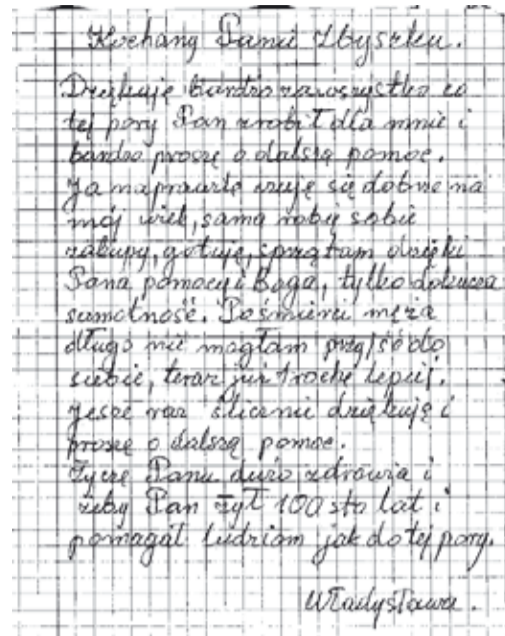 Kochany Panie Zbyszku.
Dziękuję bardzo zawszystko co
tej pory Pan zrobił dla mnie i
bardzo proszę o dalszą pomoc.
Ja naprawdę czuję się dobrze na
mój wiek, sama robię sobie
zakupy, gotuję, sprzątam dzięki
Pana pomocy i Boga, tylko dokucza
samotność. Pośmierci męża
długo nie mogłam przyjść do
siebie, teraz już trochę lepiej.
Jesce raz ślicznie dziękuję i
proszę o dalszą pomoc.
Życzę Panu dużo zdrowia i
żeby Pan żył 100 sto lat i
pomagał ludziom jak do tej pory.
Władysława.